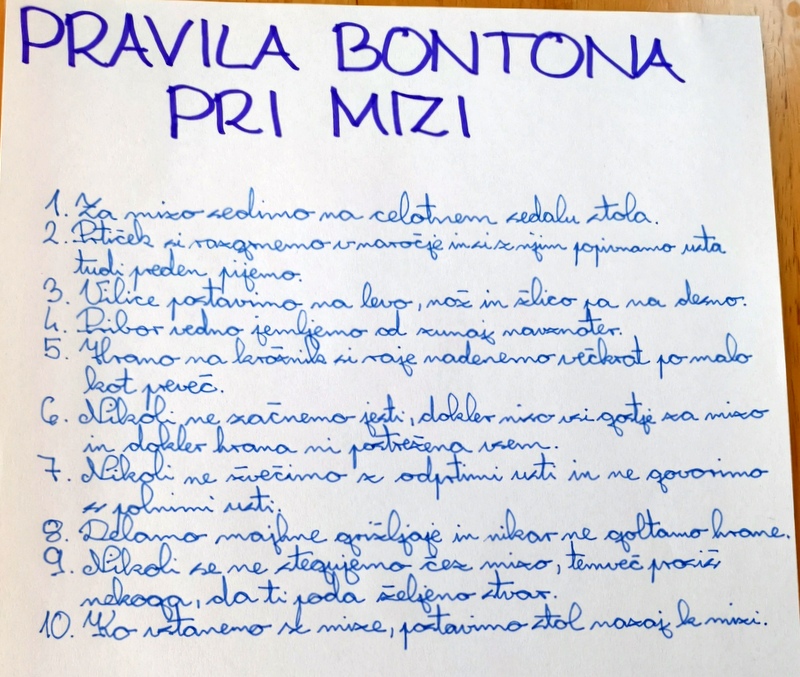 PRAVILA BONTONA
PRI MIZI
1. Za mizo sedimo na celotnem sedalu stola.
2. Prtiček si razgrnemo v naročje in si z njim popivnamo usta
tudi preden pijemo.
3. Vilice postavimo na levo, nož in žlico pa na desno.
4. Pribor vedno jemljemo od zunaj navznoter.
5. Hrano na krožnik si raje nadenemo večkrat po malo
kot preveč.
6. Nikoli ne začnemo jesti, dokler niso vsi gostje za mizo
in dokler hrana ni postrežena vsem.
7. Nikoli ne žvečimo z odprtimi usti in ne govorimo
s polnimi usti.
8. Delamo majhne grižljaje in nikar ne goltamo hrane.
9. Nikoli se ne stegujemo čez mizo, temveč prosiš
nekoga, da ti poda željeno stvar.
10. Ko vstanemo od mize, postavimo stol nazaj k mizi.